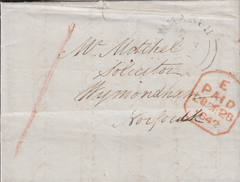 Mr Mitchel
Solicitor
Wymondham
Norfolk
E
PAID
1842